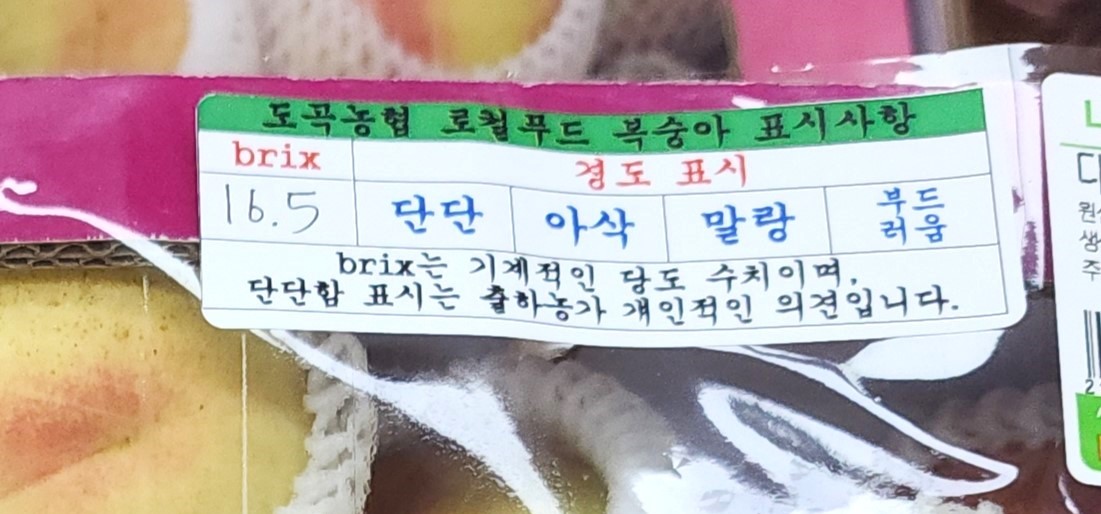 도곡농협 로컬푸드 복숭아 표시사항
brix 경도 표시
16.5 단단 아삭 말랑 부드
러움
brix는 기계적인 당도 수치이며,
단단함 표시는 출하농가 개인적인 의견입니다.